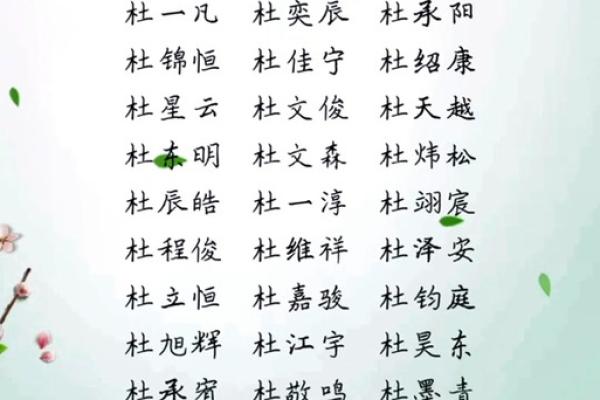 杜一凡 杜奕辰 杜承阳
杜锦恒 杜佳宁 杜绍康
杜星云 杜文俊 杜天越
杜东明 杜文森 杜炜松
杜辰皓 杜一淳 杜翊宸
杜程俊 杜维祥 杜泽安
杜立恒 杜嘉骏 杜钧庭
杜旭辉 杜江宇 杜昊东
杜承宥 杜敬鸣 杜墨青